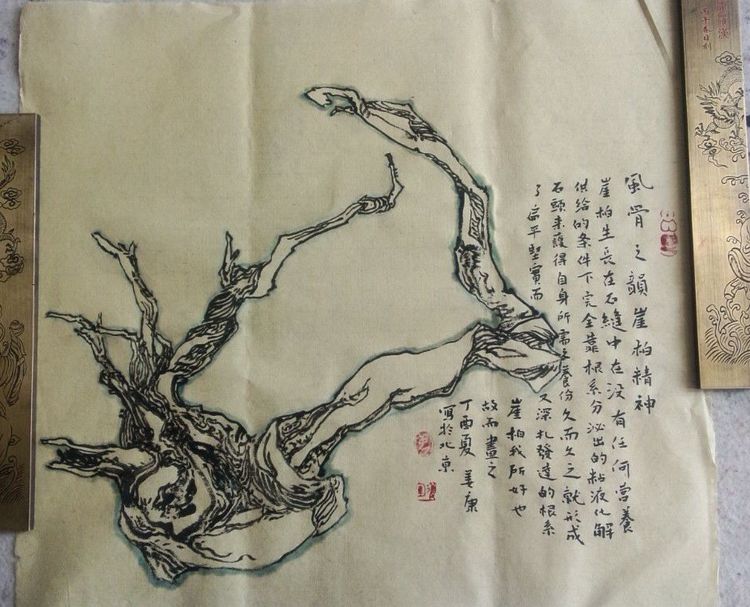 風骨之韻崖柏精神
崖柏生長在石縫中在没有任何营養
供给的条件下完全靠根系分泌出的粘液化解
石頭来獲得自身所需之養份久而久之就形成
了扁平坚實而又深扎發達的根系
崖柏我所好也
故而畫之
丁酉夏姜康
寫於北京